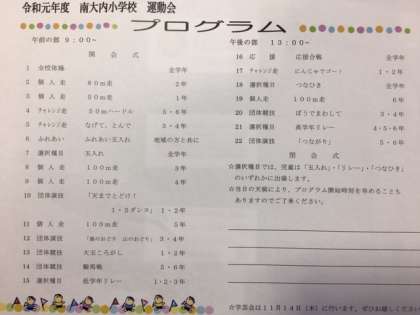 令和元年度　南大内小学校　運動会
プログラム
午前の部 9：00～
開　会　式
1　全校体操　全学年
2　個人走　80m走　2年
3　個人走　60m走　1年
4　チャレンジ走　50mハードル　5・6年
5　チャレンジ走　なげて、とんで　3・4年
6　ふれあい　ふれあい玉入れ　地域の方と共に
7　選択種目　玉入れ　全学年
8　個人走　100m走　3年
9　個人走　100m走　4年
10　団体演技　「天までとどけ！
1・2ダンス」　1・2年
11　個人走　100m走　5年
12　団体演技　3・4年
13　団体競技　天玉ころがし　1・2年
14　団体競技　騎馬戦　5・6年
15　選択種目　低学年リレー　1・2・3年
午後の部　13：00～
16　応援　応援合戦　全学年
17　チャレンジ走　にんじゃでゴー！　1・2年
18　選択種目　つなひき　全学年
19　個人走　100m走　6年
20　団体競技　ぼうでまわして　3・4年
21　選択種目　高学年リレー　4・5・6年
22　団体演技　「つながり」　5・6年
閉　会　式
☆選択種目では、児童は「玉入れ」・「リレー」・「つなひき」
のいずれかに出場します。
☆当日の天候により、プログラム開始時刻を早めることも
ありますのでご了承ください。
☆学習会は11月14日（木）に行います。ぜひお越し